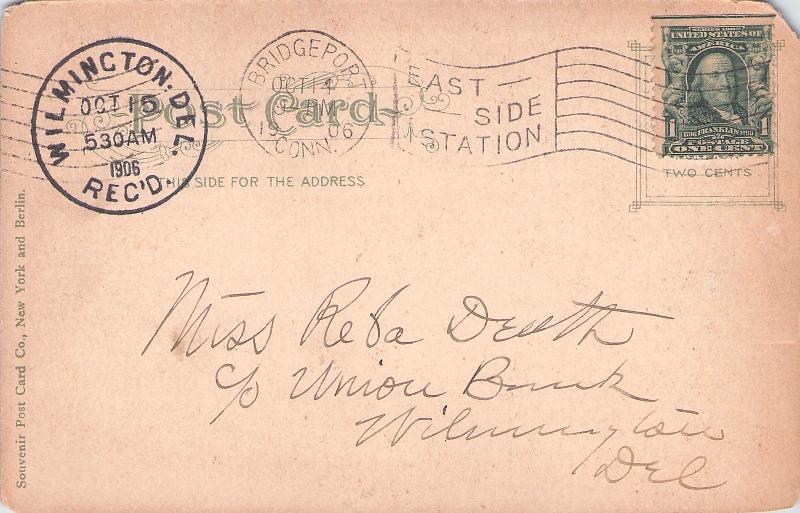 WILMINGTON. DEL.
OCT 15
530AM
1906
REC'D.
BRIDGEPORT
OCT 14
PM
19 06
CONN.
EAST
SIDE
STATION
Post Card
THIS SIDE FOR THE ADDRESS
SERIES 1902
UNITED STATES OF
AMERICA
1 FRANKLIN 1
POSTAGE
ONE CENT
TWO CENTS
Miss Reba
c/o Union Bank
Wilmington
Del
Souvenir Post Card Co., New York and Berlin.